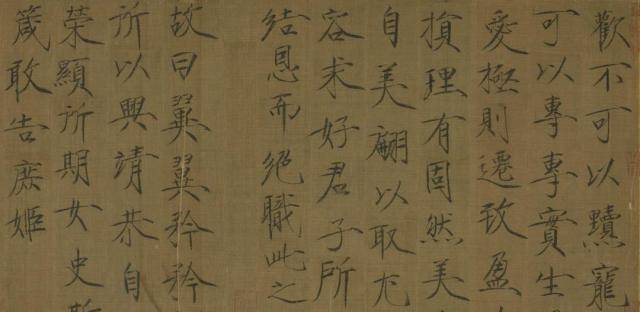 歡不可以黷寵
可以專專實生
愛極則遷致盈
損理有固然美
自美翩以取尤
容求好君子所
結恩而絕職此之
故曰翼翼矜矜
所以興靖恭自
榮顯所期女史斯
箴敢告庶姬